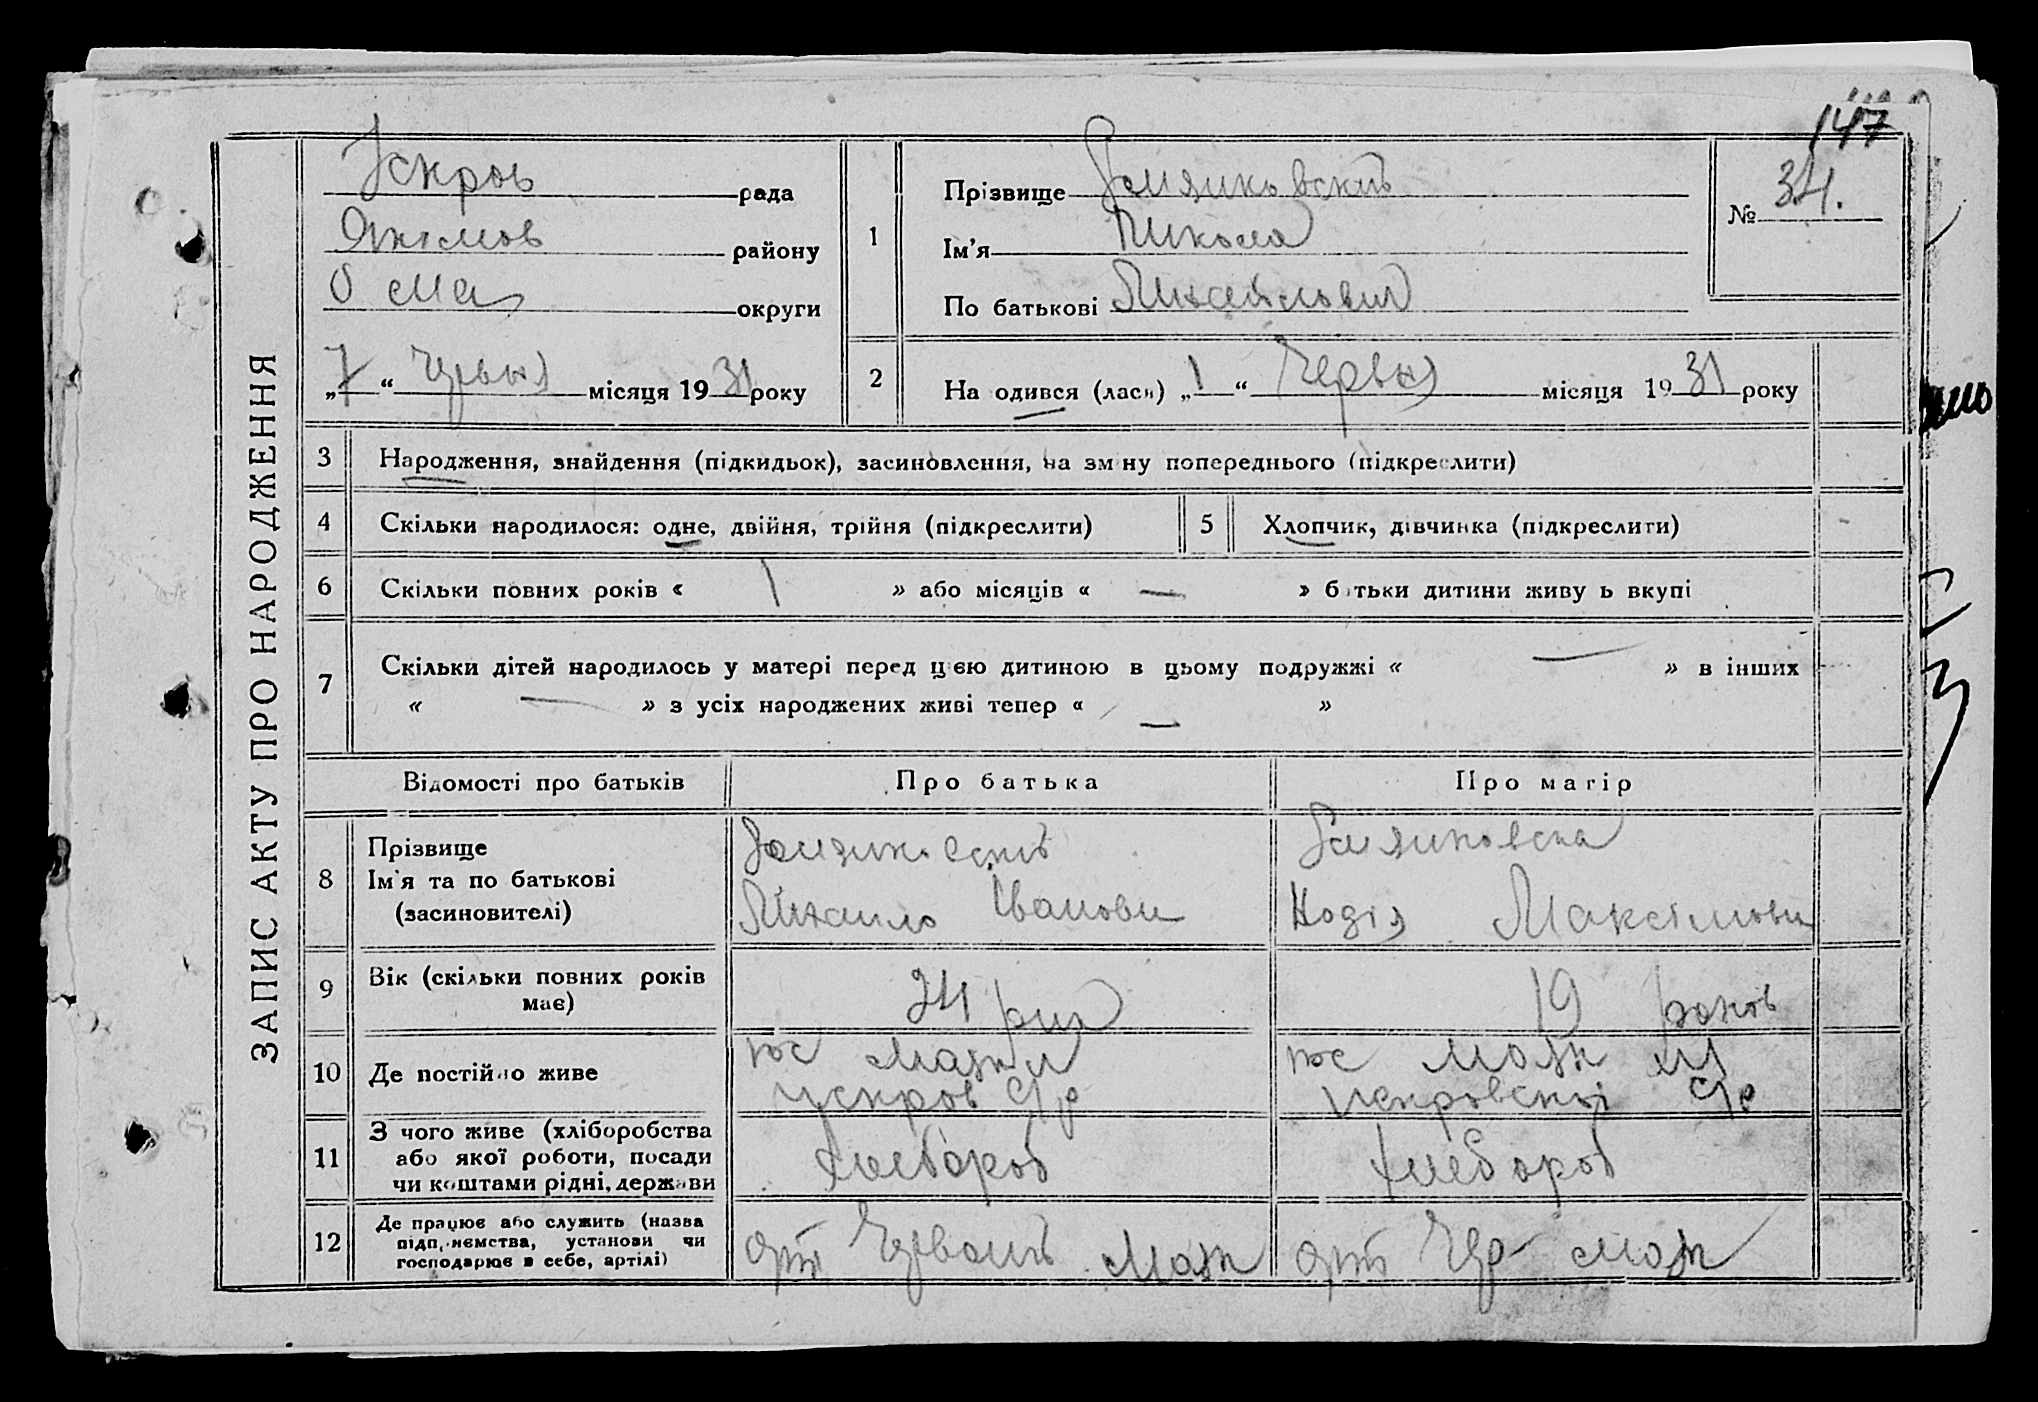 147
ЗАПИС АКТУ ПРО НАРОДЖЕННЯ
Іскров рада
Якимов району
округи
„7“ Червня місяця 1931 року
1
Прізвище
Ім'я Микола
По батькові Михайлович
№ 34.
2
На одився (лася) „1“ Червня місяця 1931 року
3 Народження, знайдення (підкидьок), засиновлення, на зм ну попереднього (підкреслити)
4 Скільки народилося: одне, двійня, трійня (підкреслити) 5 Хлопчик, дівчинка (підкреслити)
6 Скільки повних років « 1 » або місяців « — » б тьки дитини живу ь вкупі
7 Скільки дітей народилось у матері перед цією дитиною в цьому подружжі « — » в інших
« — » з усіх народжених живі тепер « — »
Відомості про батьків Про батька Про матір
8 Прізвище
Ім'я та по батькові Михаило Іванови Надія Максімовн
(засиновителі)
9 Вік (скільки повних років має) 24 рик 19 роков
10 Де постійно живе пос Маяк
Искров С/р Искровскої С/р
11 З чого живе (хліборобства
або якої роботи, посади хлебороб хлебороб
чи коштами рідні, держави
12 Де працює або служить (назва
підприємства, установи чи арт Червоний Маяк арт Чер Маяк
господарює в себе, артілі)